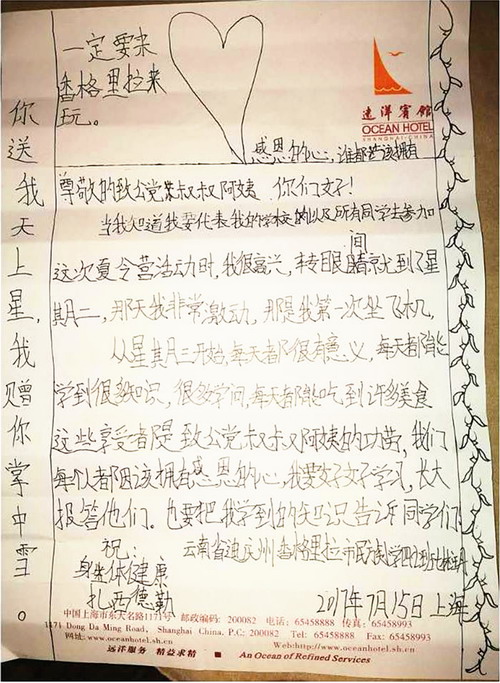 一定要来
香格里拉来
玩。
你送我天上星,我赠你掌中雪。
遠洋賓館
OCEAN HOTEL
SHANGHAI·CHINA
感恩的心,谁都应该拥有
尊敬的致公党叔叔阿姨 你们好!
当我知道我要代表我的学校以及所有同学去参加
这次夏令营活动时,我很高兴,转眼间就到了星
期二,那天我非常激动,那是我第一次坐飞机,
从星期三开始,每天都很有意义,每天都能
学到很多知识,很多学问,每天都能吃到许多美食
这些享受都是致公党叔叔阿姨的功劳,我们
每个人都因该拥有感恩的心,我要好好学习,长大
报答他们。也要把我学到的知识告诉同学们
祝: 云南省迪庆州香格里拉市民族
身体健康
扎西德勒 2017年7月15日上海
中国上海市东大名路1171号 邮政编码: 200082 电话: 65458888 传真: 65458993
1171 Dong Da Ming Road, Shanghai China. P.C: 200082 Tel: 65458888 Fax: 65458993
网址: www.oceanhotel.sh.cn Web:http://www.oceanhotel.sh.cn
远洋服务 精益求精 ■ An Ocean of Refined Services